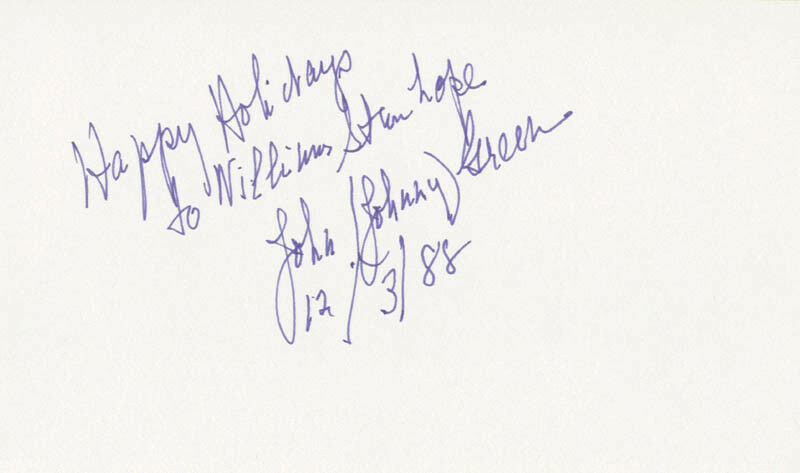 Happy Holidays
to William Stanhope
John (Johnny) Green
12/3/88